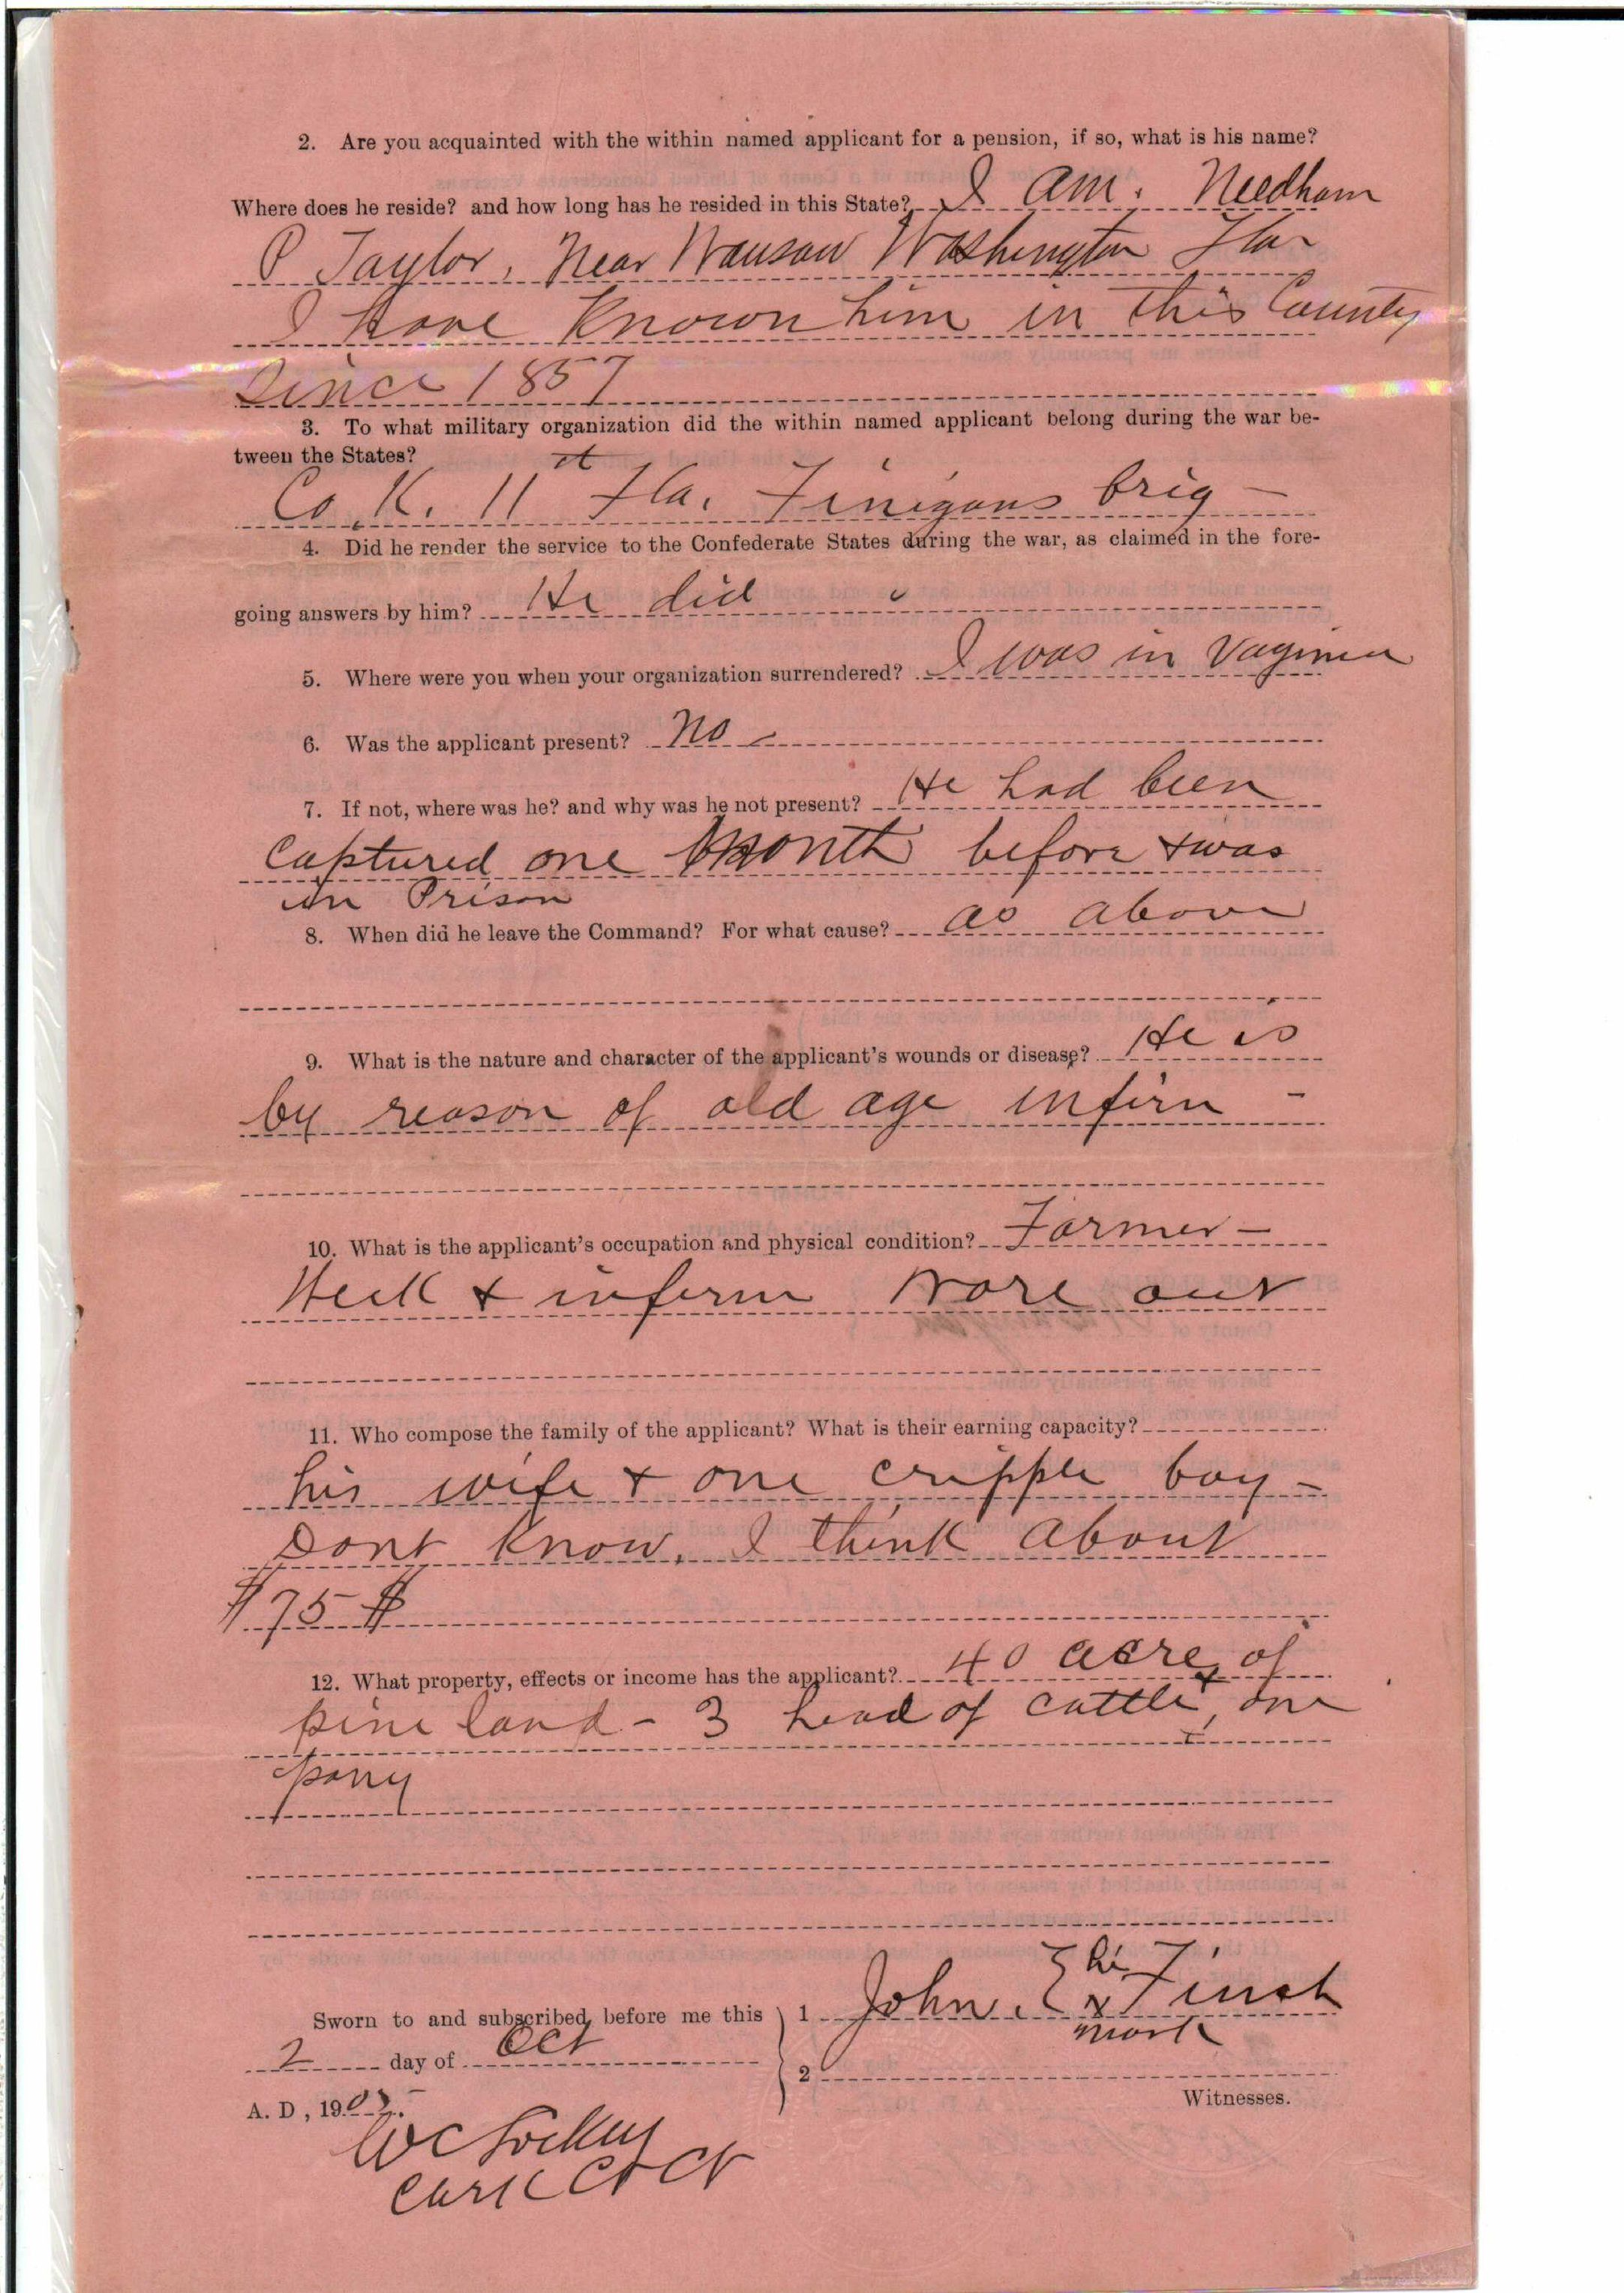 2. Are you acquainted with the within named applicant for a pension, if so, what is his name?
Where does he reside? and how long has he resided in this State? I am. Needham
P Taylor, Near Wausau Washington Fla
I have Known him in this County
Since 1857
3. To what military organization did the within named applicant belong during the war be-
tween the States?
Co. K. 11 Fla. Finigans brig –
4. Did he render the service to the Confederate States during the war, as claimed in the fore-
going answers by him? He did
5. Where were you when your organization surrendered? I was in
6. Was the applicant present? No
7. If not, where was he? and why was he not present? He had been
Captured one month before + was
in Prison
8. When did he leave the Command? For what cause? as above
9. What is the nature and character of the applicant's wounds or disease? He is
by reason of old age infirm –
10. What is the applicant's occupation and physical condition? Farmer –
Week + inferm wore out
11. Who compose the family of the applicant? What is their earning capacity?
his wife + one cripple boy –
Dont Know. I think about
$75 $
12. What property, effects or income has the applicant? 40 acre of
pine land – 3 head of cattle + one
pony
Sworn to and subscribed before me this
2 day of Oct
A. D, 190
1 John E his x mark Finch
2
Witnesses.
W C Lockey
Clerk C Ct